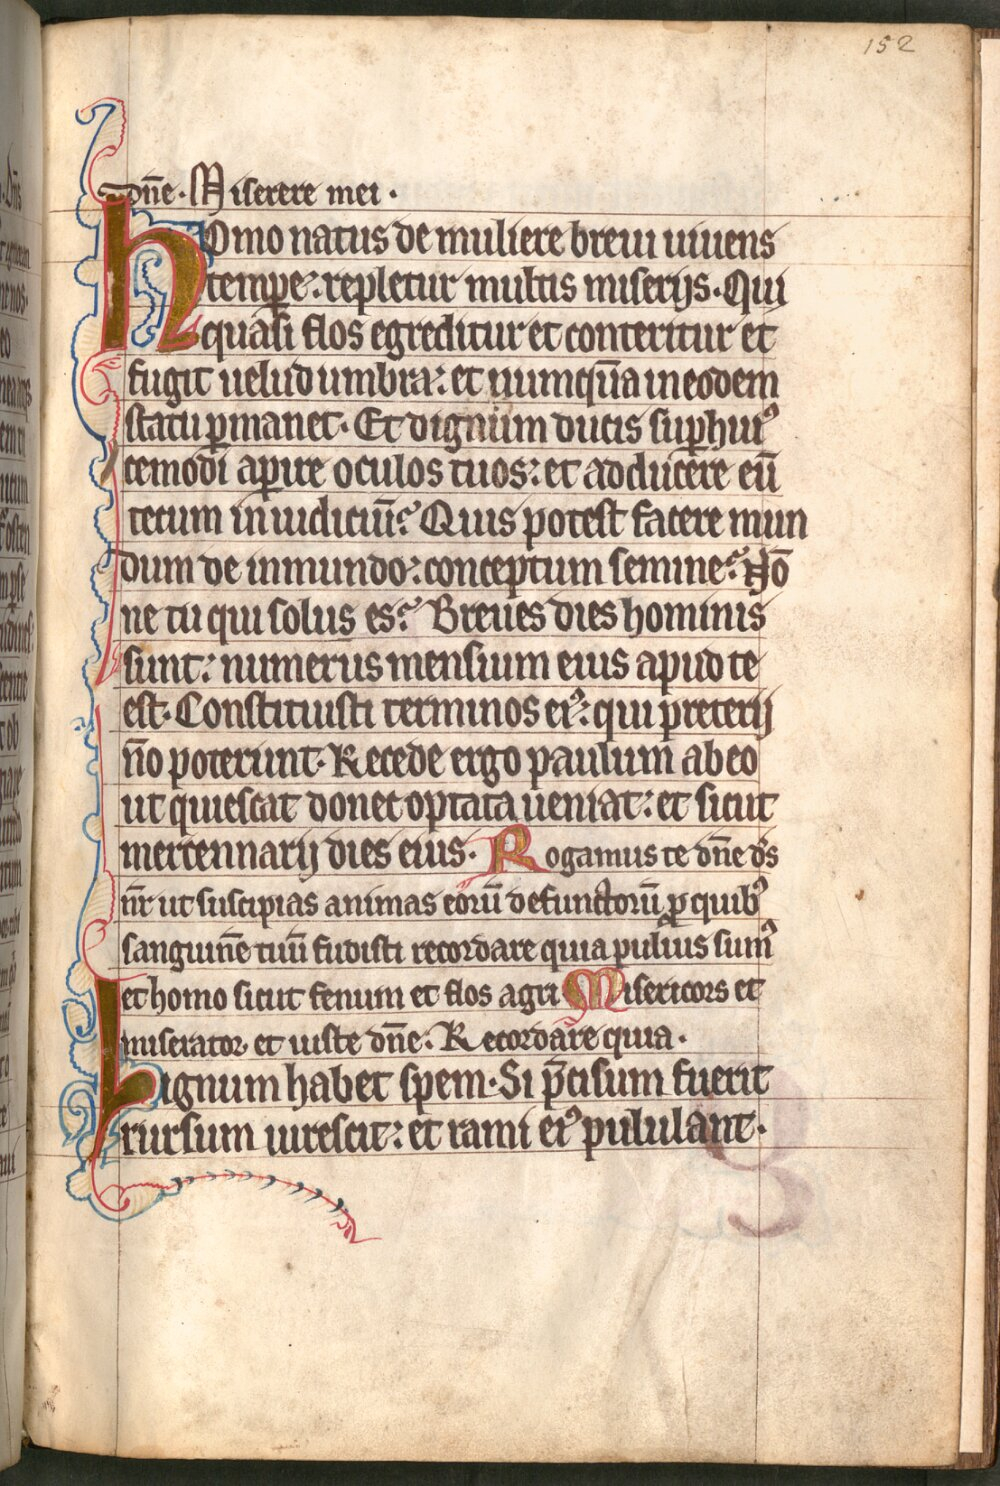 152
dn̄e. Miserere mei.
Homo natus de muliere breui uiuens
temp̄e: repletur multis miserijs. Qui
quasi flos egreditur et conteritur et
fugit uelud umbra: et numqūa in eodem
statu ꝑmanet. Et dignum ducis suꝑ huiꝰ
cemodi aꝑire oculos tuos: et adducere eū
tecum in iudiciū? Quis potest facere mun
dum de inmundo: conceptum semine? Nō
ne tu qui solus es? Breues dies hominis
sunt: numerus mensium eius apud te
est. Constituisti terminos eiꝰ: qui p̄reterij
n̄o poterunt. Recede ergo paulum ab eo
ut quiescat donec optata ueniat: et sicut
mercennarij dies eius. Rogamus te dn̄e ds̄
nr̄ ut suscipias animas eorū defunctorū ꝓ quibꝰ
sanguin̄e tuū fudisti recordare quia puluis sumꝰ
et homo sicut fenum et flos agri Misericors et
miserator et iuste dn̄e. Recordare quia.
Lignum habet spem. Si p̄cisum fuerit
rursum uirescit: et rami eiꝰ pululant.